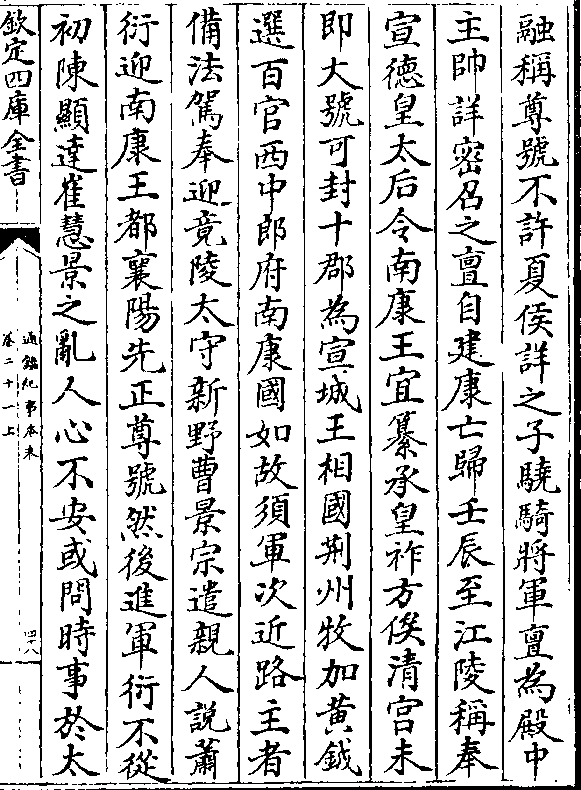 融稱尊號不許夏侯詳之子驍騎將軍亶為殿中
主帥詳密召之亶自建康亡歸壬辰至江陵稱奉
宣德皇太后令南康王宜纂承皇祚方俟清宮未
即大號可封十郡為宣城王相國荆州牧加黃鉞
選百官西中郎府南康國如故須軍次近路主者
備法駕奉迎竟陵太守新野曹景宗遣親人說蕭
衍迎南康王都襄陽先正尊號然後進軍衍不從
初陳顯達崔慧景之亂人心不安或問時事於太
欽定四庫全書
通鑑紀事本末
卷二十一上
四八